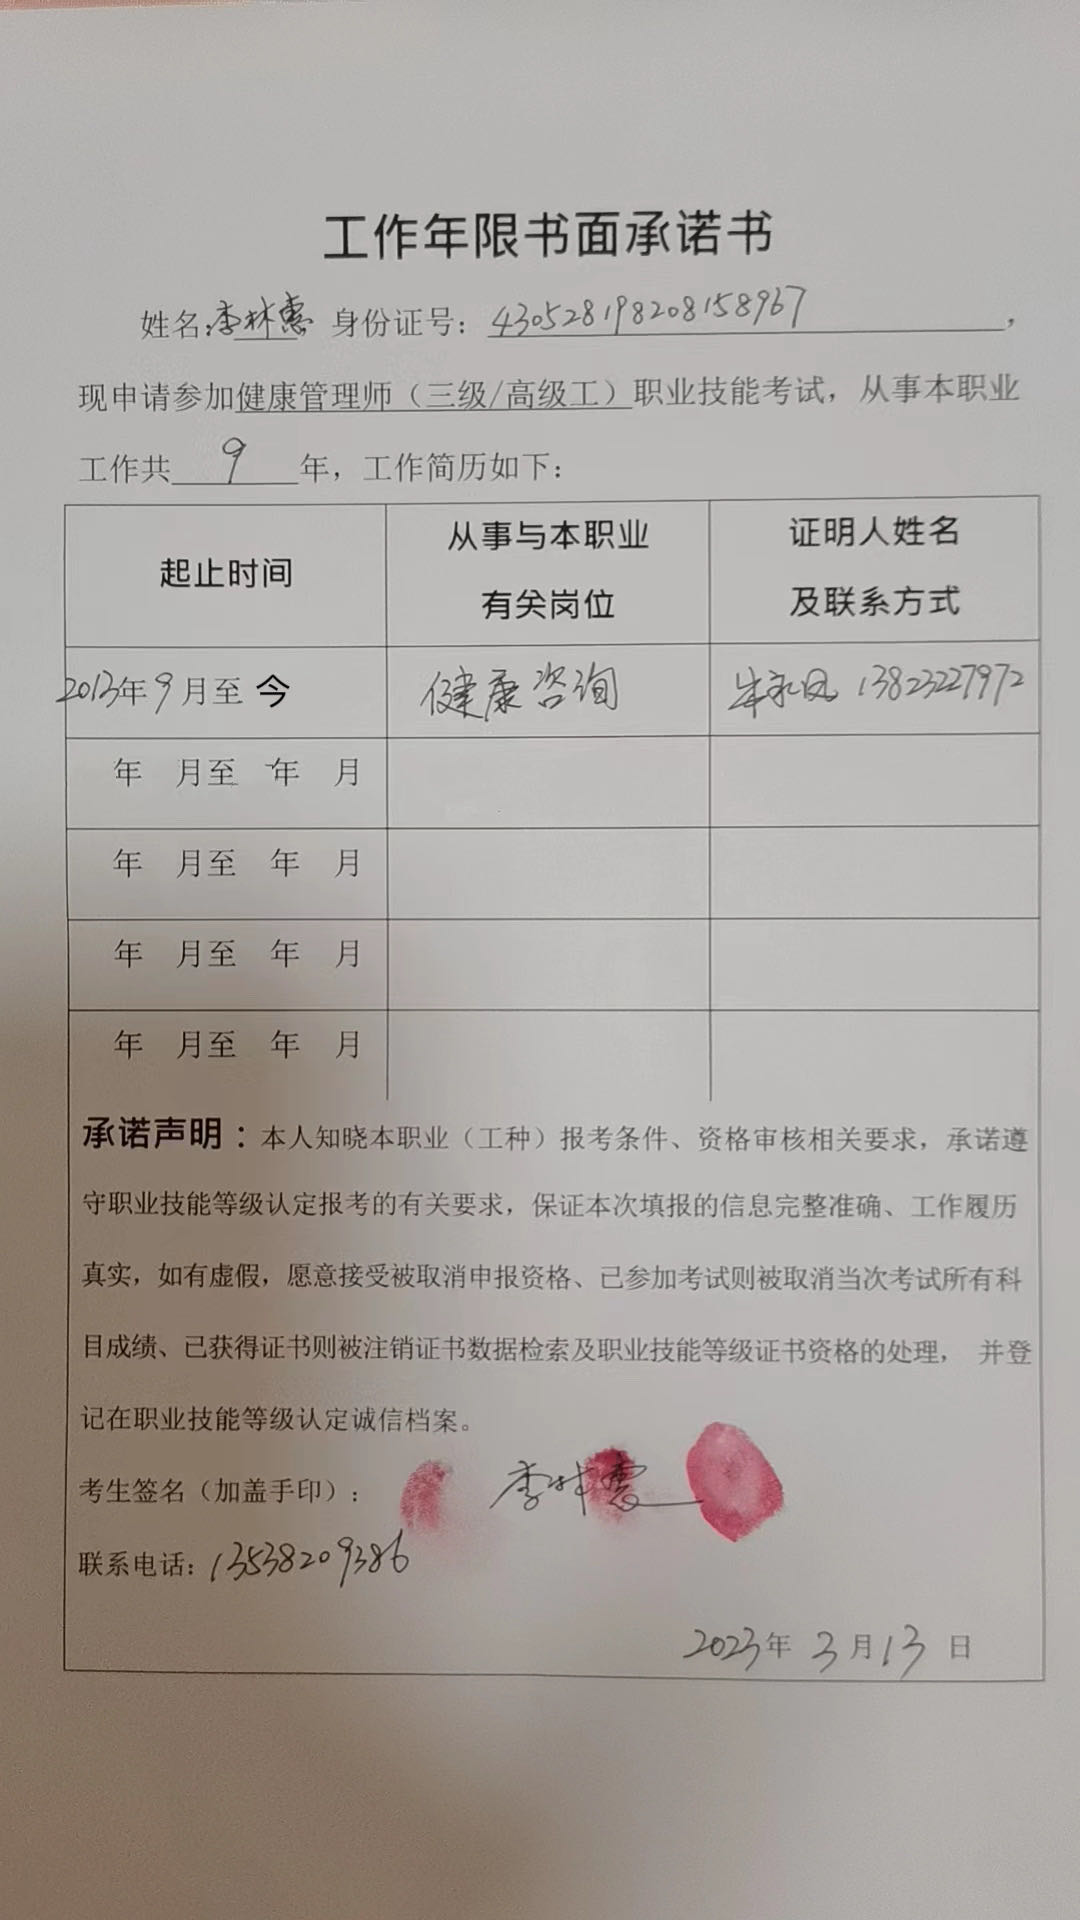 工作年限书面承诺书
姓名:李林惠 身份证号：430528198208158967，
现申请参加健康管理师（三级/高级工）职业技能考试，从事本职业
工作共 9 年，工作简历如下：
起止时间 从事与本职业有关岗位 证明人姓名及联系方式
2013年9月至今 健康咨询 13823227972
年 月至 年 月
年 月至 年 月
年 月至 年 月
年 月至 年 月
承诺声明：本人知晓本职业（工种）报考条件、资格审核相关要求，承诺遵
守职业技能等级认定报考的有关要求，保证本次填报的信息完整准确、工作履历
真实，如有虚假，愿意接受被取消申报资格、已参加考试则被取消当次考试所有科
目成绩、已获得证书则被注销证书数据检索及职业技能等级证书资格的处理， 并登
记在职业技能等级认定诚信档案。
考生签名（加盖手印）： 李林惠
联系电话：13538209386
2023年 3月13日